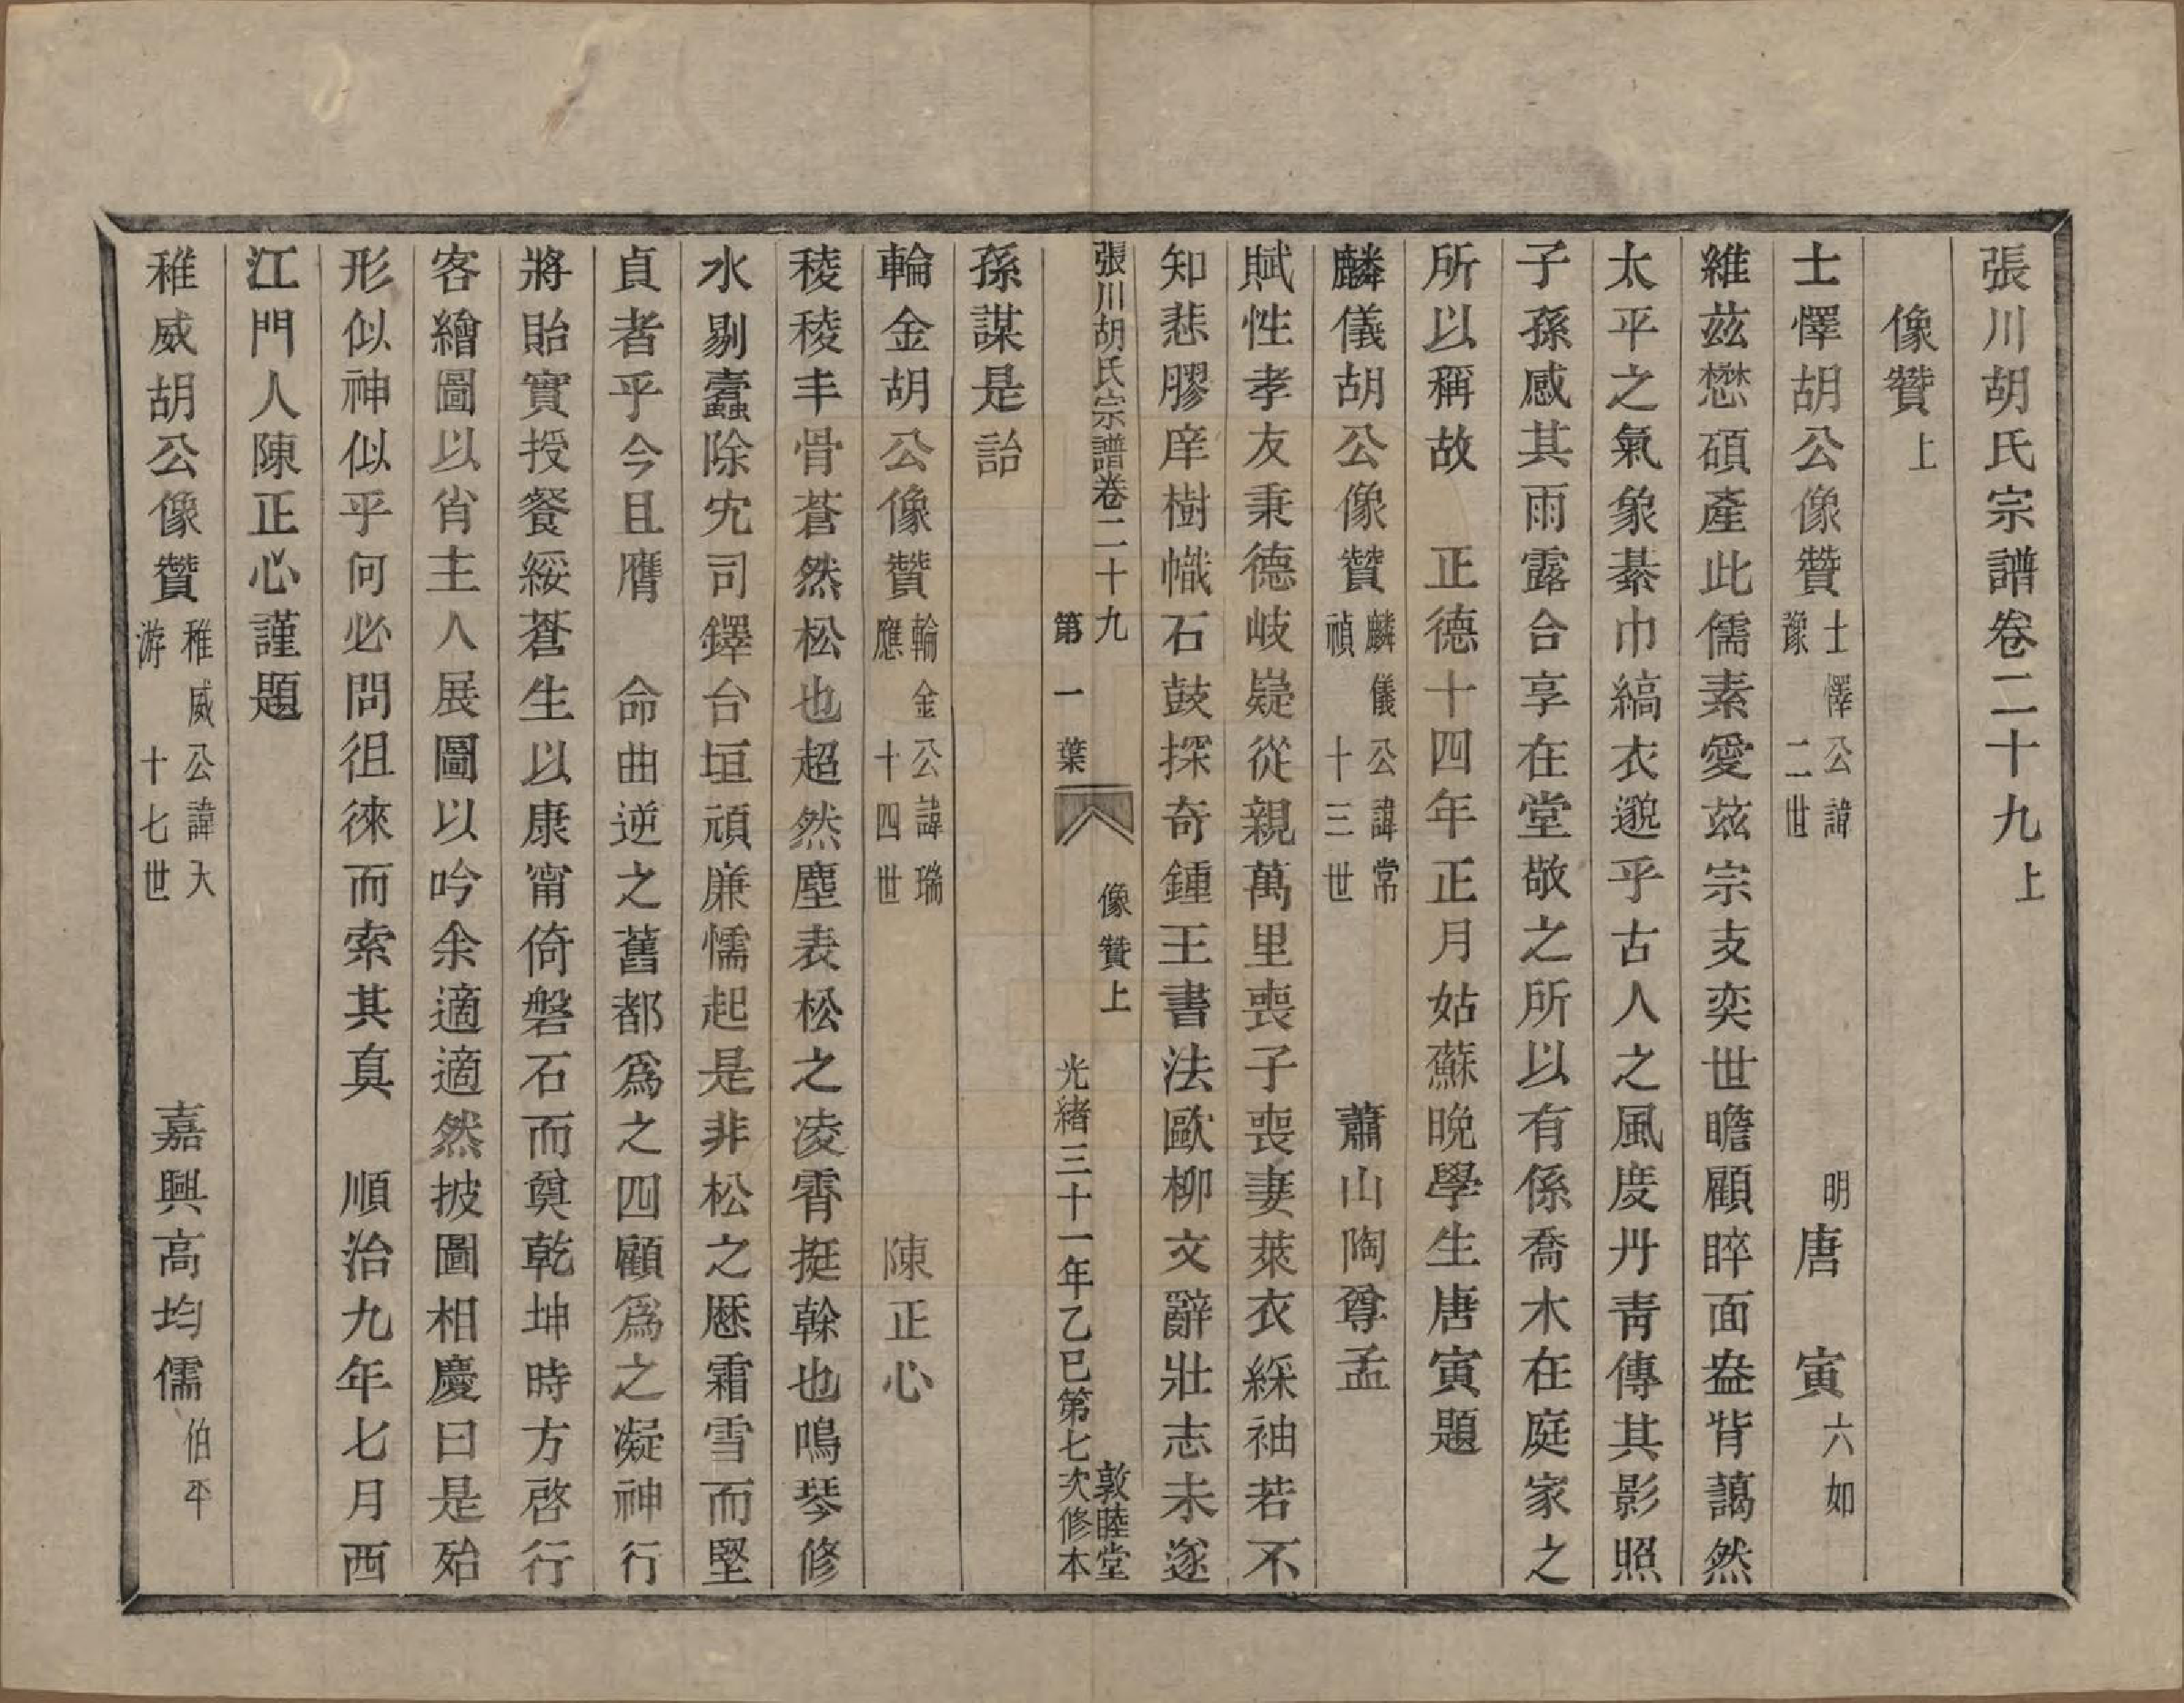 張川胡氏宗譜卷二十九上
像贊上
士懌胡公像贊 士懌公諱豫二世 明唐寅六如
維茲懋碩產此儒素愛茲宗支奕世瞻顧睟面盎背藹然
太平之氣象綦巾縞衣邈乎古人之風度丹靑傳其影照
子孫感其雨露合享在堂敬之所以有係喬木在庭家之
所以稱故 正德十四年正月姑蘇晚學生唐寅題
麟儀胡公像贊 麟儀公諱常禎十三世 蕭山陶尊孟
賦性孝友秉德岐嶷從親萬里喪子喪妻萊衣綵袖若不
知悲膠庠樹幟石鼓探奇鍾王書法歐柳文辭壯志未遂
張川胡氏宗譜卷二十九 第一葉 像贊上 光緒三十一年乙巳第七次修本 敦睦堂
孫謀是詒
輪金胡公像贊 輪金公諱瑞應十四世 陳正心
稜稜丰骨蒼然松也超然塵表松之凌霄挺榦也鳴琴修
水剔蠹除宄司鐸台垣頑廉懦起是非松之厯霜雪而堅
貞者乎今且膺 命曲逆之舊都爲之四顧爲之凝神行
將貽實授餐綏蒼生以康甯倚磐石而奠乾坤時方啓行
客繪圖以省主人展圖以吟余適適然披圖相慶曰是殆
形似神似乎何必問徂徠而索其真 順治九年七月西
江門人陳正心謹題
稚威胡公像贊 稚威公諱天游十七世 嘉興高均儒伯平